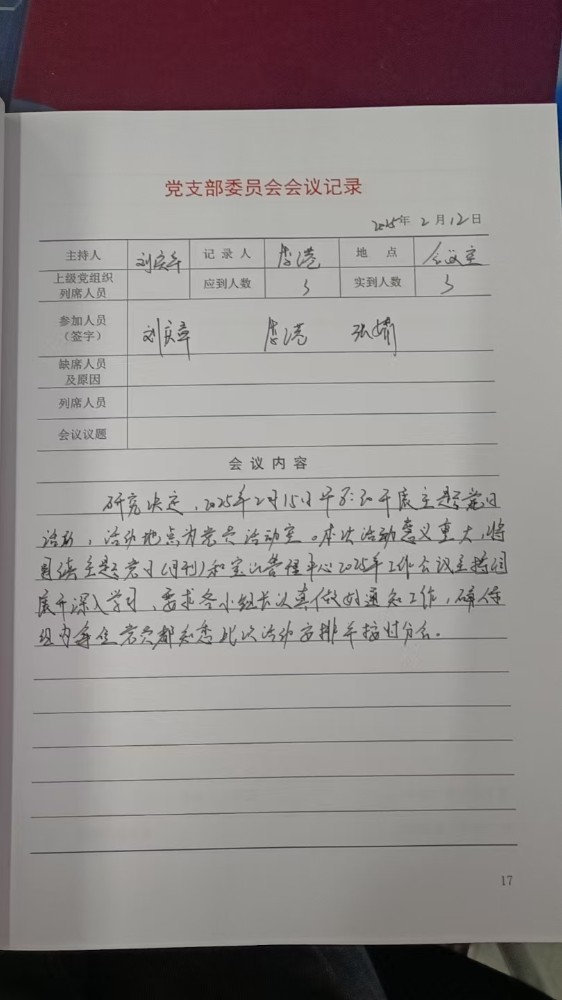 党支部委员会会议记录
2025年 2月 12日
主持人 刘庆年 记录人 唐港 地点 会议室
上级党组织列席人员 应到人数 3 实到人数 3
参加人员（签字） 刘庆章 唐港 张婧
缺席人员及原因
列席人员
会议议题
会议内容
研究决定，2025年2月15日下午 开展主题党日
活动，活动地点为党员活动室。本次活动意义重大，将
围绕主题党日（月刊）和宝山管理中心2025年工作会议主持词
展开深入学习，要求各小组长认真做好通知工作，确保
组内每位党员都知悉此次活动安排并按时参会。
17